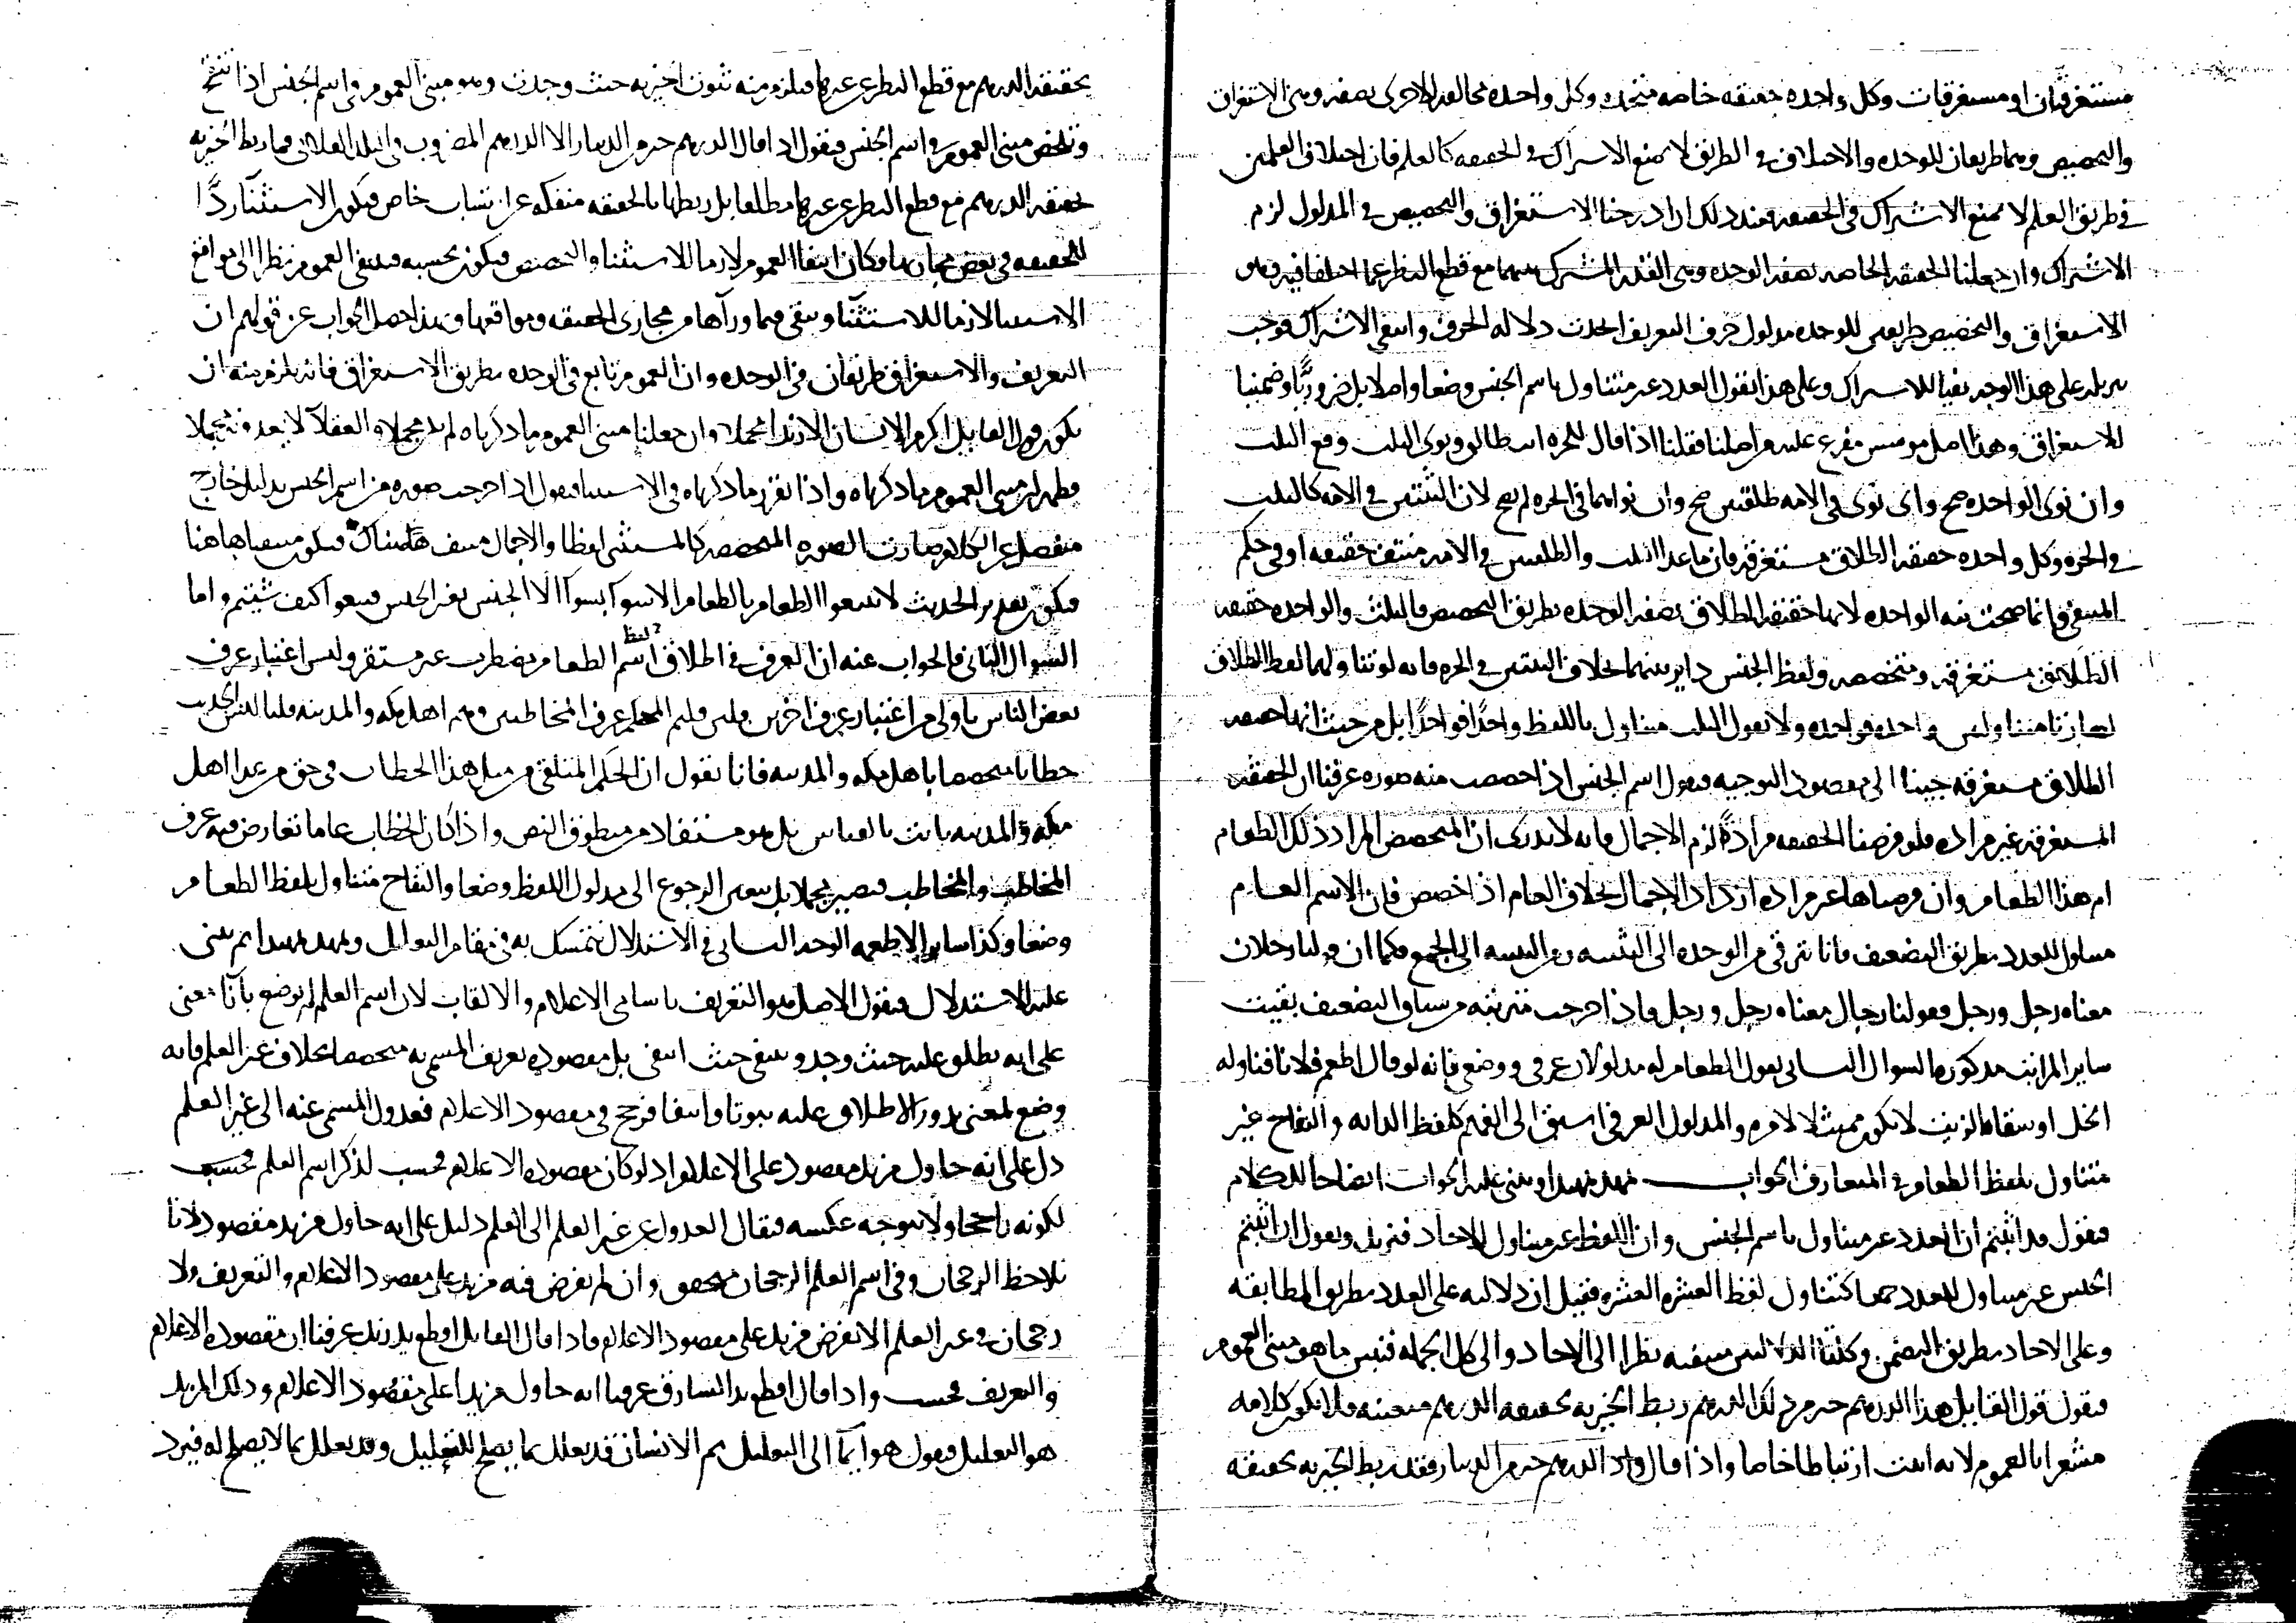 مستغرقتان او مستغرقات وكل واحده حقيقه خاصه متحده وكل واحده مخالفه للاخرى بصفه وهى الاستغراق
والتخصيص وهما طريقان للوحده والاختلاف فى الطريق لا يمنع الاشتراك فى الحقيقه كالعلم فان اختلاف العلمين
فى طريق العلم لا يمنع الاشتراك فى الحقيقه فعند ذلك ان ادرجنا الاستغراق والتخصيص فى المدلول لزم
الاشتراك وان جعلنا الحقيقه الخاصه بصفه الوحده وهى القدر المشترك بينهما مع قطع النظر عما اختلفا فيه وهو
الاستغراق والتخصيص طريقين للوحده مدلول حرف التعريف اتحدت دلاله الحرف وانتفى الاشتراك فوجب
تنزيله على هذا الوجه نفيا للاشتراك وعلى هذا نقول العدد غير متناول باسم الجنس وضعا واصلا بل ضروره وضمنا
للاستغراق وهذا اصل موسس مفرع عليه من اصلنا فقلنا اذا قال للحره انت طالق ونوى الثلث وقع الثلث
وان نوى الواحده صح وان نوى فى الامه طلقتين صح وان نواهما فى الحره لم يصح لان الثنتين فى الامه كالثلث
فى الحره وكل واحده حقيقه الطلاق مستغرقه فان ما عدا الثلث والطلقتين فى الامه منتف حقيقه او فى حكم
المنتفى وانما صحت نيه الواحده لانها حقيقه الطلاق بصفه الوحده بطريق التخصيص فالثلث والواحده حقيقه
الطلاق مستغرقه ومتخصصه ولفظ الجنس داير بينهما بخلاف الثنتين فى الحره فانه لو تناولهما لفظ الطلاق
لصارتا متناولتين واحده فواحده ولا نقول الثلث متناول باللفظ واحدا فواحدا بل من حيث انها حقيقه
الطلاق مستغرقه جينا الى مقصود التوجيه فنقول اسم الجنس اذا خصصت منه صوره عرفنا ان الحقيقه
المستغرقه غير مراده فلو فرضنا الحقيقه مراده لزم الاجمال فانه لا يدرى ان المتخصص المراد ذلك الطعام
ام هذا الطعام وان فرضناها غير مراده ازداد الاجمال بخلاف العام اذا خصص فان الاسم العام
متناول للعدد بطريق التضعيف فانا نترقى من الوحده الى التثنيه ومن التثنيه الى الجمع فكما ان قولنا رجلان
معناه رجل ورجل فقولنا رجال معناه رجل ورجل ورجل فاذا اخرجت مرتبه من سياق التضعيف بقيت
ساير المراتب مذكوره السوال الثانى نقول الطعام له مدلولان عرفى ووضعى فانه لو قال اطعم فلانا فناوله
الخل او سقاه الزيت لا يكون ممتثلا لامره والمدلول العرفى اسبق الى الفهم كلفظ الدابه والتفاح غير
متناول بلفظ الطعام فى المتعارف الجواب نمهد تمهيدا ونبنى عليه الجواب ايضاحا للكلام
فنقول قد اثبتم ان العدد غير متناول باسم الجنس وان اللفظ غير متناول للاحاد فنزيل ونقول ان اثبتم
الجنس غير متناول للعدد جمعا كتناول لفظ العشره العشره فقيل ان دلالته على العدد بطريق المطابقه
وعلى الاحاد بطريق التضمن وكلتا الدلالتين منتفيه نظرا الى الاحاد والى كل الجمله فنبين ما هو مبنى العموم
فنقول قول القايل هذا الدرهم خير من ذلك الدرهم ربط الخيريه بحقيقه الدرهم متعينه فلا يكون كلامه
مشعرا بالعموم لانه اثبت ارتباطا خاصا واذا قال واذا الدرهم خير من الدينار فقد ربط الخيريه بحقيقه
بحقيقه الدرهم مع قطع النظر عن غيرها فيلزم منه ثبوت الخيريه حيث وجدت وهو مبنى العموم فى اسم الجنس اذا تنقح
وتلخص مبنى العموم فى اسم الجنس فنقول اذا قال الدرهم خير من الدينار الا الدرهم المضروب فى البلد الفلانى فما ربط الخيريه
بحقيقه الدرهم مع قطع النظر عن غيرها مطلقا بل ربطها بالحقيقه منفكه عن انتساب خاص فيكون الاستثنا ردا
للحقيقه فى بعض مجاريها وكان انتفا العموم لازما للاستثنا والتخصيص فيكون بحسبه فينتفى العموم نظرا الى مواقع
الاستثنا لازما للاستثنا ويبقى فيما وراها من مجارى الحقيقه ومواقعها وهذا حصل الجواب عن قولهم ان
التعريف والاستغراق طريقان فى الوحده وان العموم تابع فى الوحده بطريق الاستغراق فانه يلزم منه ان
يكون قول القايل اكرم الانسان الا زيدا مجملا وان جعلنا مبنى العموم ما ذكرناه لم يكن مجملا والعقلا لا يعدونه مجملا
فظهر ان مبنى العموم ما ذكرناه واذا تقرر ما ذكرناه فى الاستثنا فنقول اذا خرجت صوره من اسم الجنس بدليل خارج
منفصل عن الكلام صارت الصوره المتخصصه كالمستثنى لفظا والاجمال منتف هناك فيكون منتفيا هاهنا
فيكون تقدير الحديث لا تبيعوا الطعام بالطعام الا سوآ بسوآ الا الجنس بغير الجنس فبيعوا كيف شيتم واما
السوال الثانى فالجواب عنه ان العرف فى اطلاق اسم الطعام مضطرب غير مستقر وليس اعتبار عرف
بعض الناس باولى من اعتبار عرف اخرين فلين قلتم المحكم عرف المخاطبين وهم اهل مكه والمدينه قلنا ليس الحديث
خطابا متخصصا باهل مكه والمدينه فانا نقول ان الحكم المتلقى من مثل هذا الخطاب فى حق من عدا اهل
مكه والمدينه ثابت بالقياس بل هو مستفاد من منطوق النص واذا كان الخطاب عاما تعارض فيه عرف
المخاطب والمخاطب فيصير مجملا بل يتعين الرجوع الى مدلول اللفظ وضعا والتفاح متناول بلفظ الطعام
وضعا وكذا ساير الاطعمه الوجه الثانى فى الاستدلال نتمسك به فى مقام التعليل ونمهد تمهيدا ثم نبنى
عليه الاستدلال فنقول الاصل هو التعريف باسامى الاعلام والالقاب لان اسم العلم لم يوضع بازآ معنى
على انه يطلق عليه حيث وجد وينتفى حيث انتفى بل مقصوده تعريف المسمى به متخصصا بخلاف غير العلم فانه
وضع لمعنى يدور الاطلاق عليه ثبوتا وانتفا فرجح فى مقصود الاعلام فعدول المسمى عنه الى غير العلم
دل على انه حاول مزيد مقصود على الاعلام اذ لو كان مقصوده الاعلام فحسب لذكر اسم العلم فحسب
لكونه راجحا ولا يتوجه عكسه فيقال العدول عن غير العلم الى العلم دليل على انه حاول مزيد مقصود لانا
نلاحظ الرجحان وفى اسم العلم الرجحان متحقق وان لم يفرض فيه مزيد على مقصود الاعلام والتعريف ولا
رجحان فى غير العلم الا بفرض مزيد على مقصود الاعلام فاذا قال القايل اقطع يد زيد عرفنا ان مقصوده الاعلام
والتعريف فحسب واذا قال اقطع يد السارق عرفنا انه حاول مزيدا على مقصود الاعلام وذلك المزيد
هو التعليل فنقول هو ايمآ الى التعليل ثم الانسان قد يعلل بما يصلح للتعليل وقد يعلل بما لا يصلح له فيرد